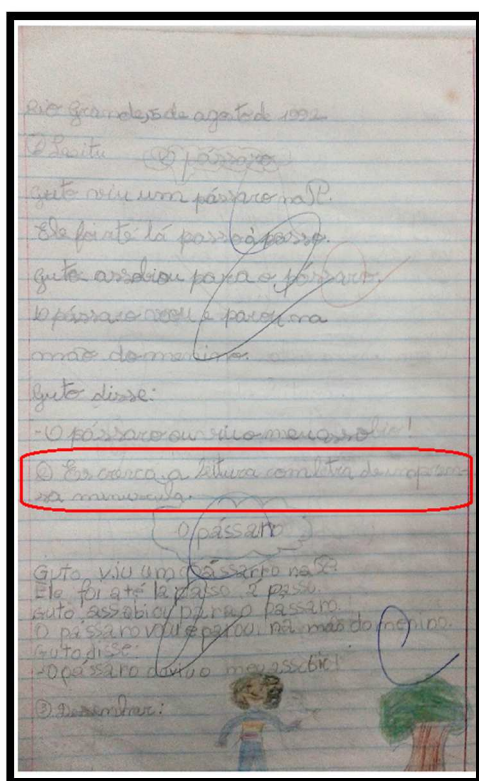 Rio Grande, 5 de agosto de 1992
① Leitu
O pássaro
Guto viu um pássaro na
Ele foi até lá passo a passo.
Guto assobiou para o pássaro.
O pássaro voou e parou na
mão do menino.
Guto disse:
- O pássaro ouviu o meu asso !
② Escreva a leitura com letra de
sa minuscula.
O pássaro
Guto viu um pássarro na
Ele foi até la passo a passo.
Guto assobiou para o passaro.
O pássaro voou e parou na mão do menino.
Guto disse:
- O pássaro ouviu o meu assobio!
③ Desenhar: